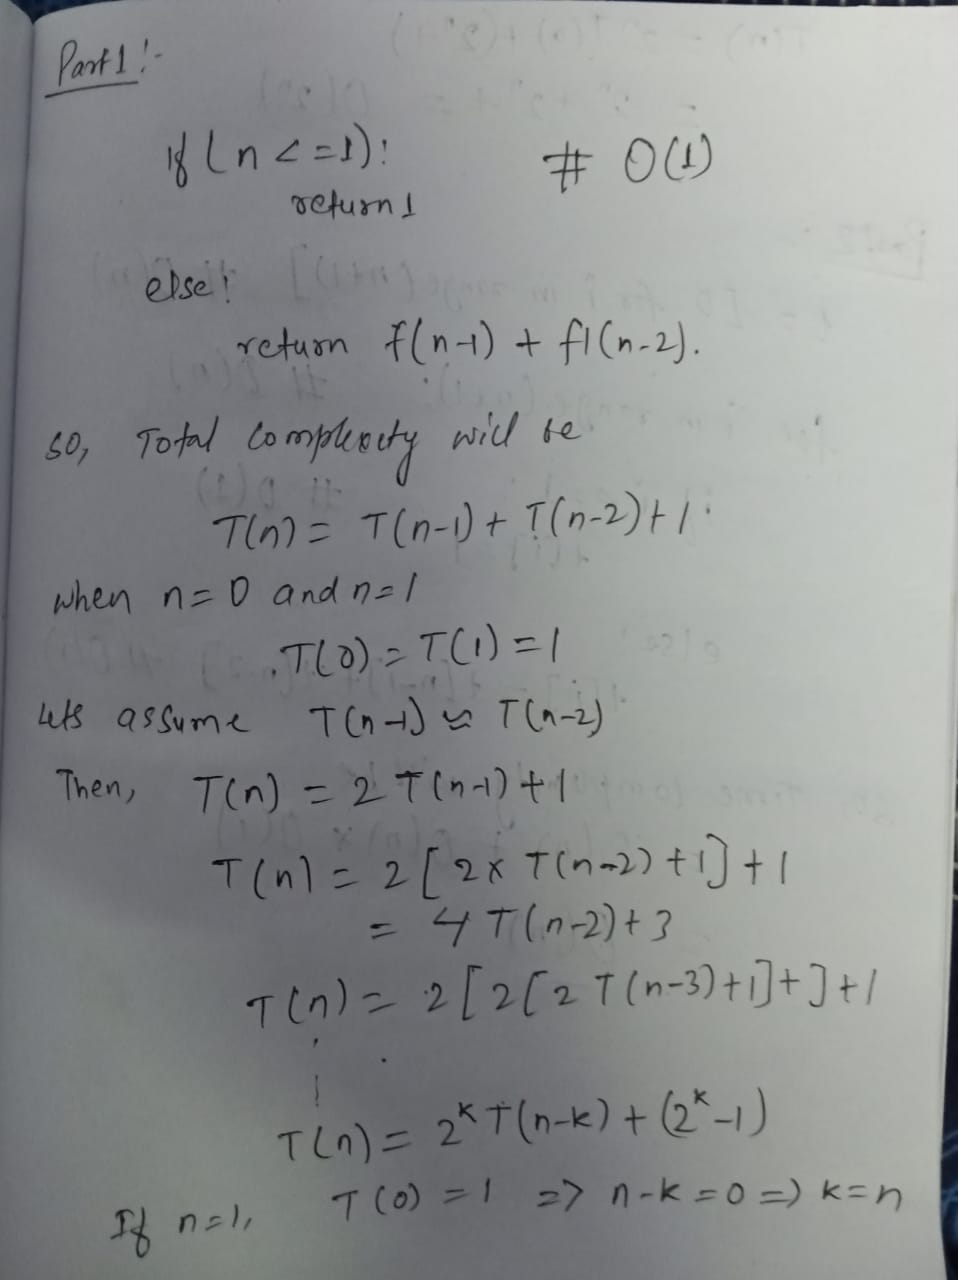 Part 1 :-
if (n <= 1):  # O(1)
return 1
else:
return f(n-1) + f1(n-2).
so, Total complexity will be
T(n) = T(n-1) + T(n-2) + 1.
when n = 0 and n = 1
T(0) = T(1) = 1
lets assume T(n-1) ≈ T(n-2)
Then, T(n) = 2 T(n-1) + 1
T(n) = 2 [ 2 x T(n-2) + 1 ] + 1
= 4 T(n-2) + 3
T(n) = 2 [ 2 [ 2 T(n-3) + 1 ] + ] + 1
T(n) = 2^k T(n-k) + (2^k - 1)
If n=1, T(0) = 1 => n-k = 0 => k = n